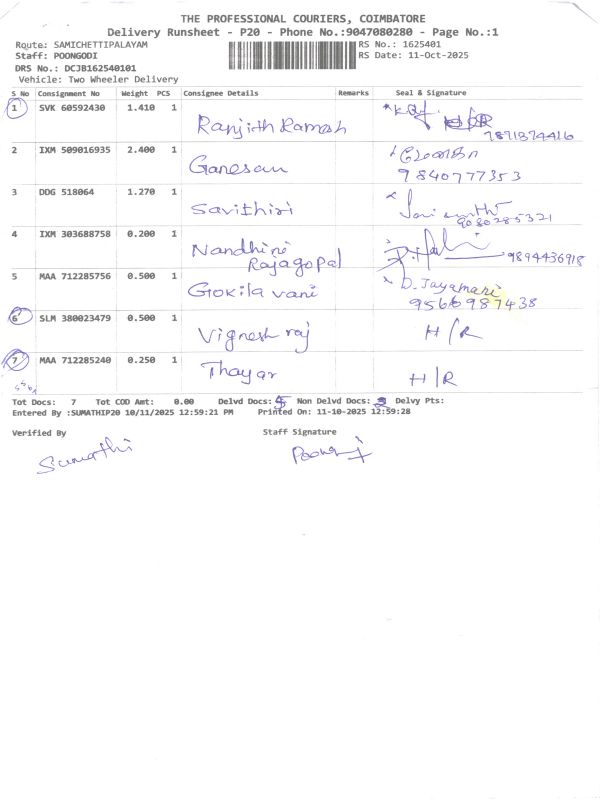 THE PROFESSIONAL COURIERS, COIMBATORE
Delivery Runsheet - P20 - Phone No.:9047080280 - Page No.:1
Route: SAMICHETTIPALAYAM RS No.: 1625401
Staff: POONGODI RS Date: 11-Oct-2025
DRS No.: DCJB162540101
Vehicle: Two Wheeler Delivery
S No Consignment No Weight PCS Consignee Details Remarks Seal & Signature
1 SVK 60592430 1.410 1 Ranjith Ramesh
7871374416
2 IXM 509016935 2.400 1 Ganesan
9840777353
3 DDG 518064 1.270 1 Savithiri
9080285321
4 IXM 303688758 0.200 1 Nandhini
Rajagopal 9894436918
5 MAA 712285756 0.500 1 Gokila vani D. Jayamani
9566987438
6 SLM 380023479 0.500 1 Vignesh raj H/R
7 MAA 712285240 0.250 1 Thayar H/R
Tot Docs: 7 Tot COD Amt: 0.00 Delvd Docs: 5 Non Delvd Docs: 2 Delvy Pts:
Entered By :SUMATHIP20 10/11/2025 12:59:21 PM Printed On: 11-10-2025 12:59:28
Verified By Staff Signature
Sumathi